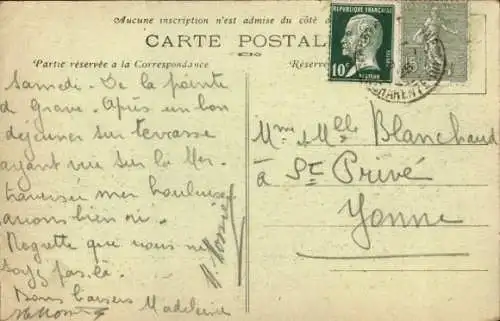 Aucune inscription n'est admise du côté d
CARTE POSTAL
Partie réservée a la Correspondance
Réserv
RÉPUBLIQUE FRANÇAISE
10c
POSTES
CHARENTE
Samedi. De la pointe
de Grave. Après un bon
déjeuner sur terrasse
ayant vue sur la Mer
traversée mer houleuse
avons bien ri.
Regrette que vous ne
soyez pas là.
Bons baisers Madeleine
Mme et Melle Blanchard
à St Privé
Yonne